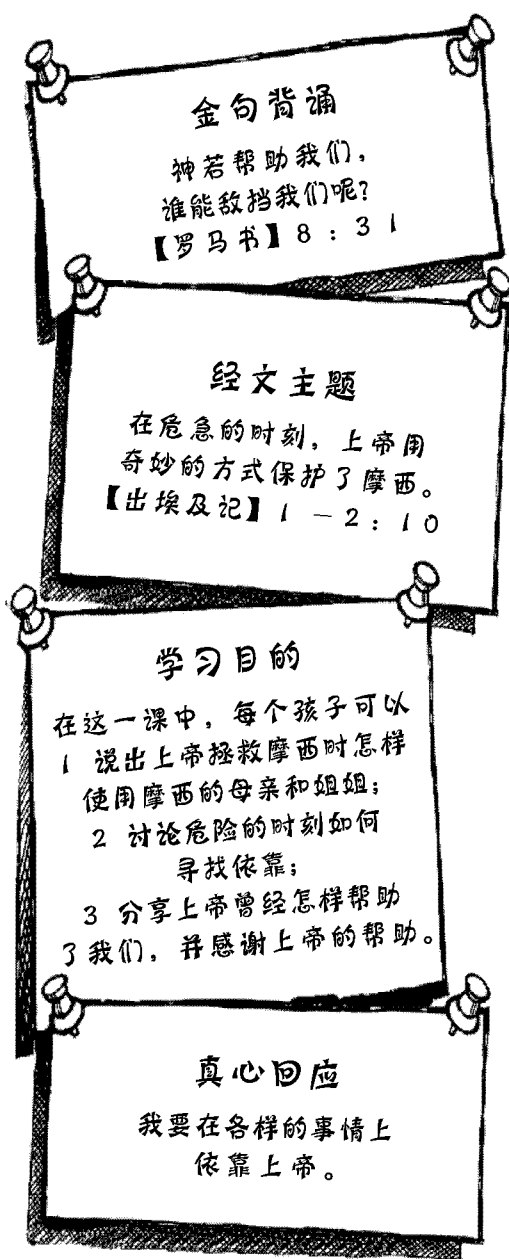 金句背诵
神若帮助我们，
谁能敌挡我们呢？
【罗马书】8：31
经文主题
在危急的时刻，上帝用
奇妙的方式保护了摩西。
【出埃及记】1－2：10
学习目的
在这一课中，每个孩子可以
1 说出上帝拯救摩西时怎样
使用摩西的母亲和姐姐；
2 讨论危险的时刻如何
寻找依靠；
3 分享上帝曾经怎样帮助
了我们，并感谢上帝的帮助。
真心回应
我要在各样的事情上
依靠上帝。